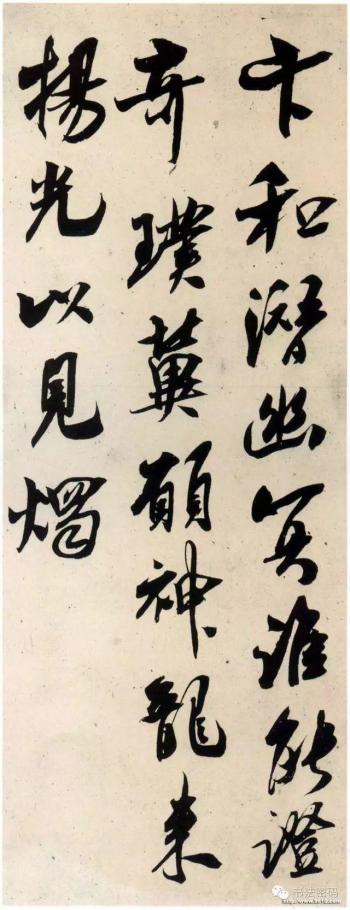 卞和潛幽冥誰能證
奇璞冀願神龍来
揚光以見燭
书法密码